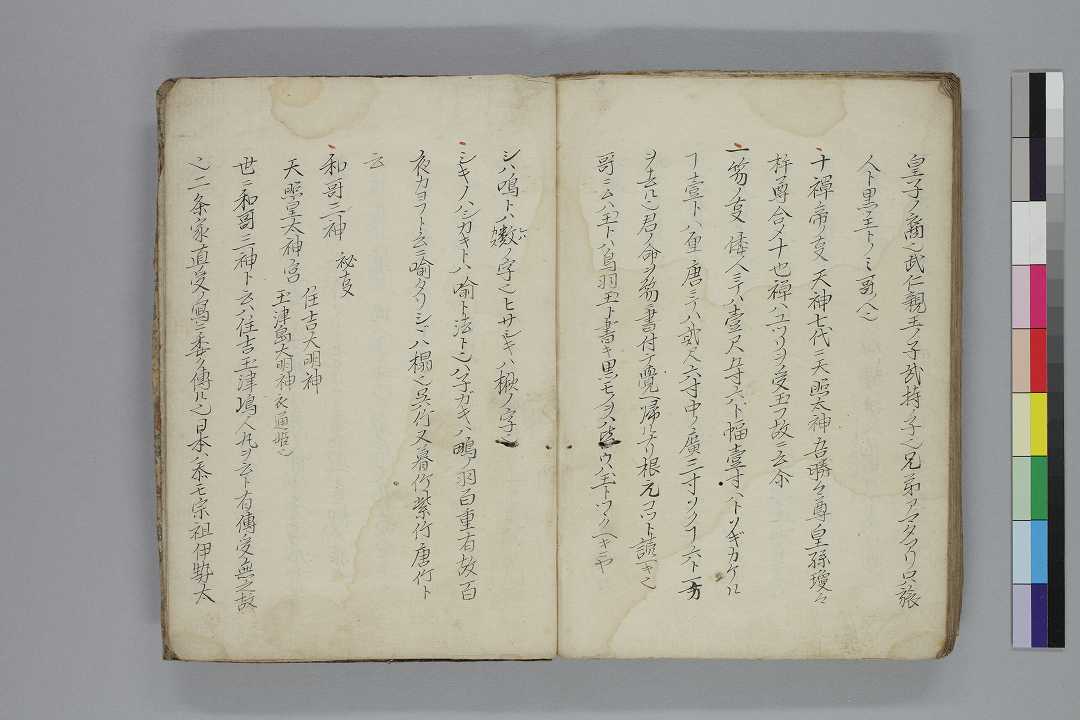 皇子ノ裔也武仁親王ノ子武持ノ子也兄弟アマタアリ只旅
人ト黒主トノミ哥人也
一十禅帝ノ事 天神七代ニ天照太神吾勝々尊皇孫瓊々
杵尊合メ十也禅ハユツリヲ受玉フ故ニ云尓
一笏ノ事 倭人ニテハ壹尺五寸六ト幅壹寸ハトソギカケル
ヿ壹ト八厘唐ニテハ貳尺六寸中ノ廣三寸ソクヿ六ト一方
ヲ去ル也君ノ命ヲ笏書付テ覺帰ルヨリ根元コツト讀ヘキ也
哥ニ云ハ玉トハ烏羽玉ト書キ黒モノヲハ
シハ鳴トハ数ノ字也ヒサシキハ楸ノ字也
シキノハシカキトハ喩ト法トシハ子ガキハ鴫ノ羽百重有故百
夜カヨフト云ニ喩タリシヂハ榻也呉竹又暮竹紫竹唐竹ト
云
和哥三神 秘事
住吉大明神
天照皇太神宮
玉津島大明神 衣通姫也
世ニ和哥三神ト云ハ住吉玉津嶋人丸ヲ云ト有傳受無之故
也二条家直受ノ寫ニ委ク傳ル也日本ハ忝モ宗祖伊弉太